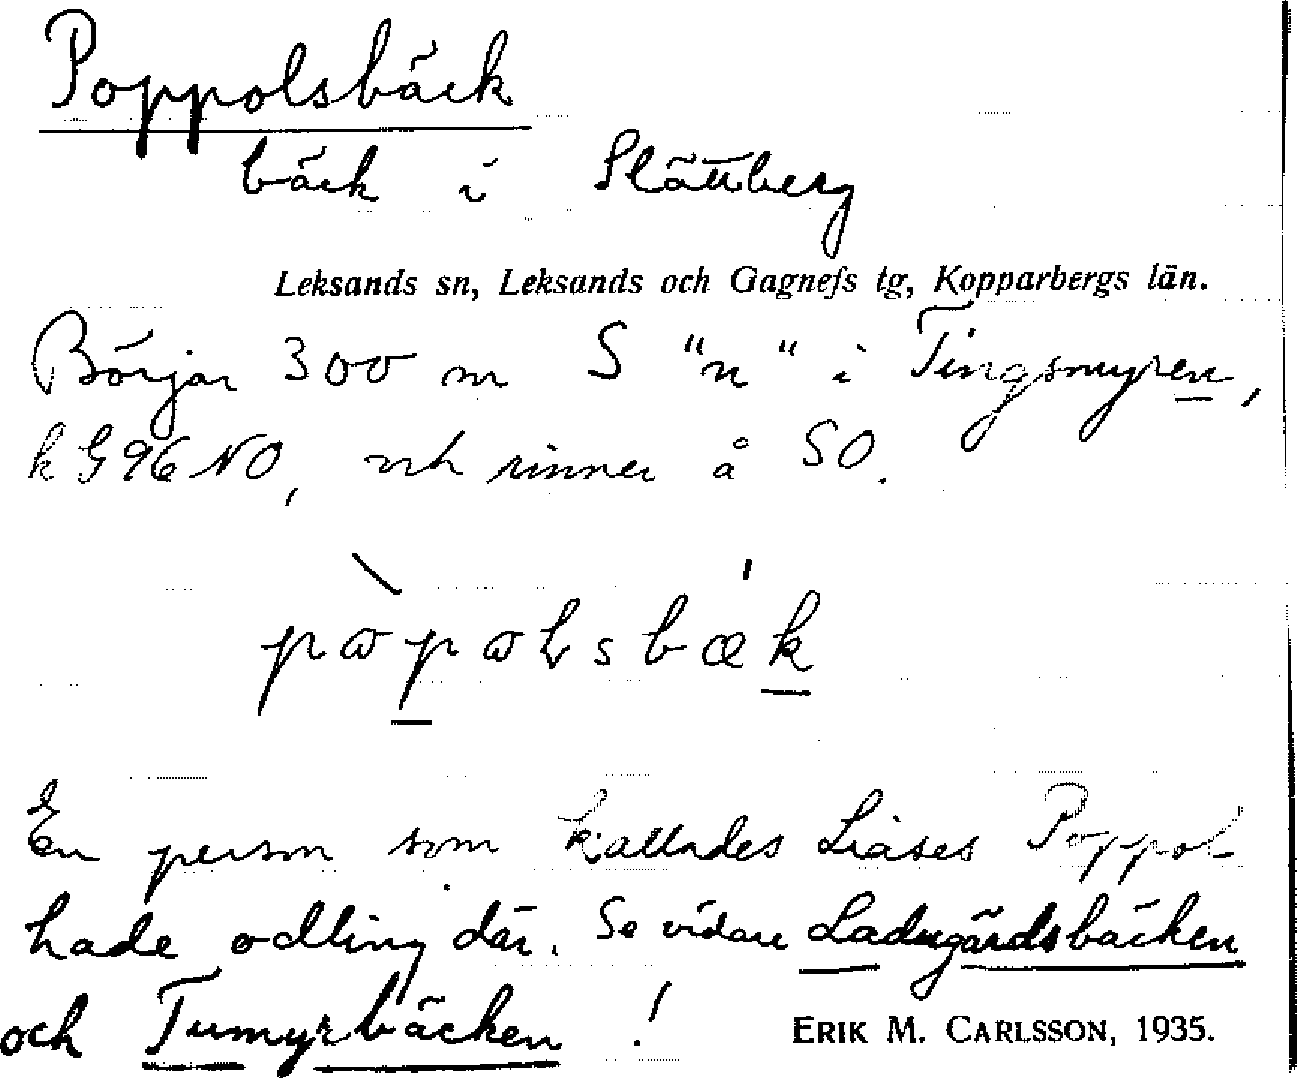 Poppolsbäck
bäck i Slättberg
Leksands sn, Leksands och Gagnefs tg, Kopparbergs län.
Börjar 300 m S "n" i Tingsmyren,
k G96NO, och rinner å SO.
pɷpɷlsbæk
En person som kallades Liases Poppol
hade odling där. Se vidare Ladugårdsbäcken
och Tumyrbäcken !
ERIK M. CARLSSON, 1935.